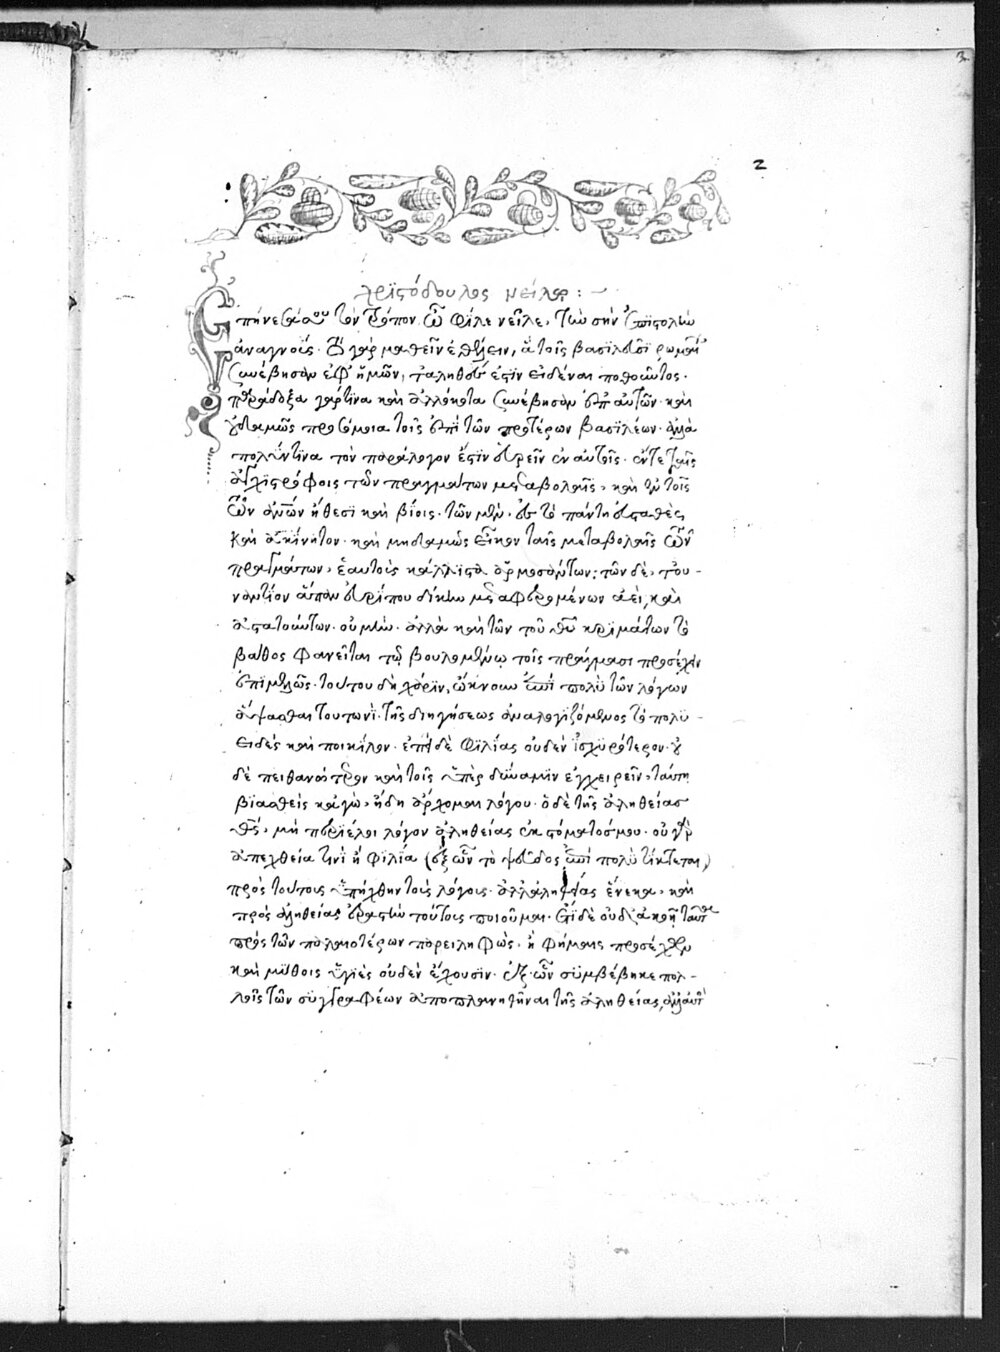 2
χριστόδουλος νείλῳ :
Ἐπήνεσά σου τὸν τρόπον ὦ φίλε νεῖλε, τὴν σὴν ἐπιστολὴν
ἀναγνούς. τὸ γὰρ μαθεῖν ἐθέλειν, ἃ τοῖς βασιλεῦσι ῥωμαί
συνέβησαν ἐφ' ἡμῶν, τἀληθές ἐστιν εἰδέναι ποθοῦντος.
παράδοξα γάρ τινα καὶ ἀλλόκοτα συνέβησαν ἐπ' αὐτῶν. καὶ
οὐδαμῶς προσόμοια τοῖς ἐπὶ τῶν προτέρων βασιλέων. ἀλλὰ
πολύν τινα τὸν παράλογον ἔστιν εὑρεῖν ἐν αὐτοῖς. ἔν τε ταῖς
ἀγχιστρόφοις τῶν πραγμάτων μεταβολαῖς, καὶ ἐν τοῖς
τῶν ἤθεσι καὶ βίοις. τῶν μὲν, ἐς τὸ πάντη εὐσταθὲς
καὶ ἀκίνητον. καὶ μηδαμῶς εἶκον ταῖς μεταβολαῖς τῶν
πραγμάτων, ἑαυτοὺς κάλλιστα ἁρμοσάντων: τῶν δὲ, τοὐ-
ναντίον ἅπαν εὐρίπου δίκην μεταφερομένων ἀεὶ, καὶ
ἀστατούντων. οὐ μὴν ἀλλὰ καὶ τῶν τοῦ θεοῦ κριμάτων τὸ
βάθος φανεῖται τῷ βουλομένῳ τοῖς πράγμασι προσέχειν
ἐπιμελῶς. τούτου δὴ χάριν, ὤκνουν ἐπὶ πολὺ τῶν λόγων
ἅψασθαι τουτωνὶ. τῆς διηγήσεως ἀναλογιζόμενος τὸ πολυ-
ειδὲς καὶ ποικίλον. ἐπεὶ δὲ φιλίας οὐδὲν ἰσχυρότερον. οὐ
δὲ πειθανώτερον καὶ τοῖς ὑπὲρ δύναμιν ἐγχειρεῖν, ταύτῃ
βιασθεὶς κἀγὼ, ἤδη ἄρχομαι λόγου. ὁ δὲ τῆς ἀληθείας
θεὸς, μὴ περιέλοι λόγον ἀληθείας ἐκ στόματός μου. οὐ γὰρ
ἀπεχθείᾳ τινὶ ἢ φιλίᾳ (ἐξ ὧν τὸ ψεῦδος ἐπὶ πολὺ τίκτεται)
πρὸς τούτους ὑπήχθην τοὺς λόγους. ἀλλ' ἀληθείας ἕνεκα, καὶ
πρὸς ἀληθείας ἐραστὴν τούτους ποιοῦμαι. εἰ δὲ οὐδ' ἀκοῇ ταῦτα
πρὸς τῶν παλαιοτέρων παρειληφὼς, ἢ φήμαις προσέχων
καὶ μύθοις ὑγιὲς οὐδὲν ἔχουσιν. ἐξ ὧν συμβέβηκε πολ-
λοῖς τῶν συγγραφέων ἀποπλανηθῆναι τῆς ἀληθείας, ἀλλ' αὐτὸ